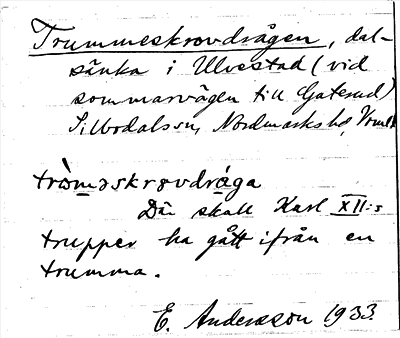 Trummeskrovdrågen, dal-
sänka i Ulvestad (vid
sommarvägen till Gaterud)
Sillbodals sn, Nordmarks hd, Vrml.
tròməskrovdråga
Där skall Karl XII:s
trupper ha gått ifrån en
trumma.
E. Andersson 1933